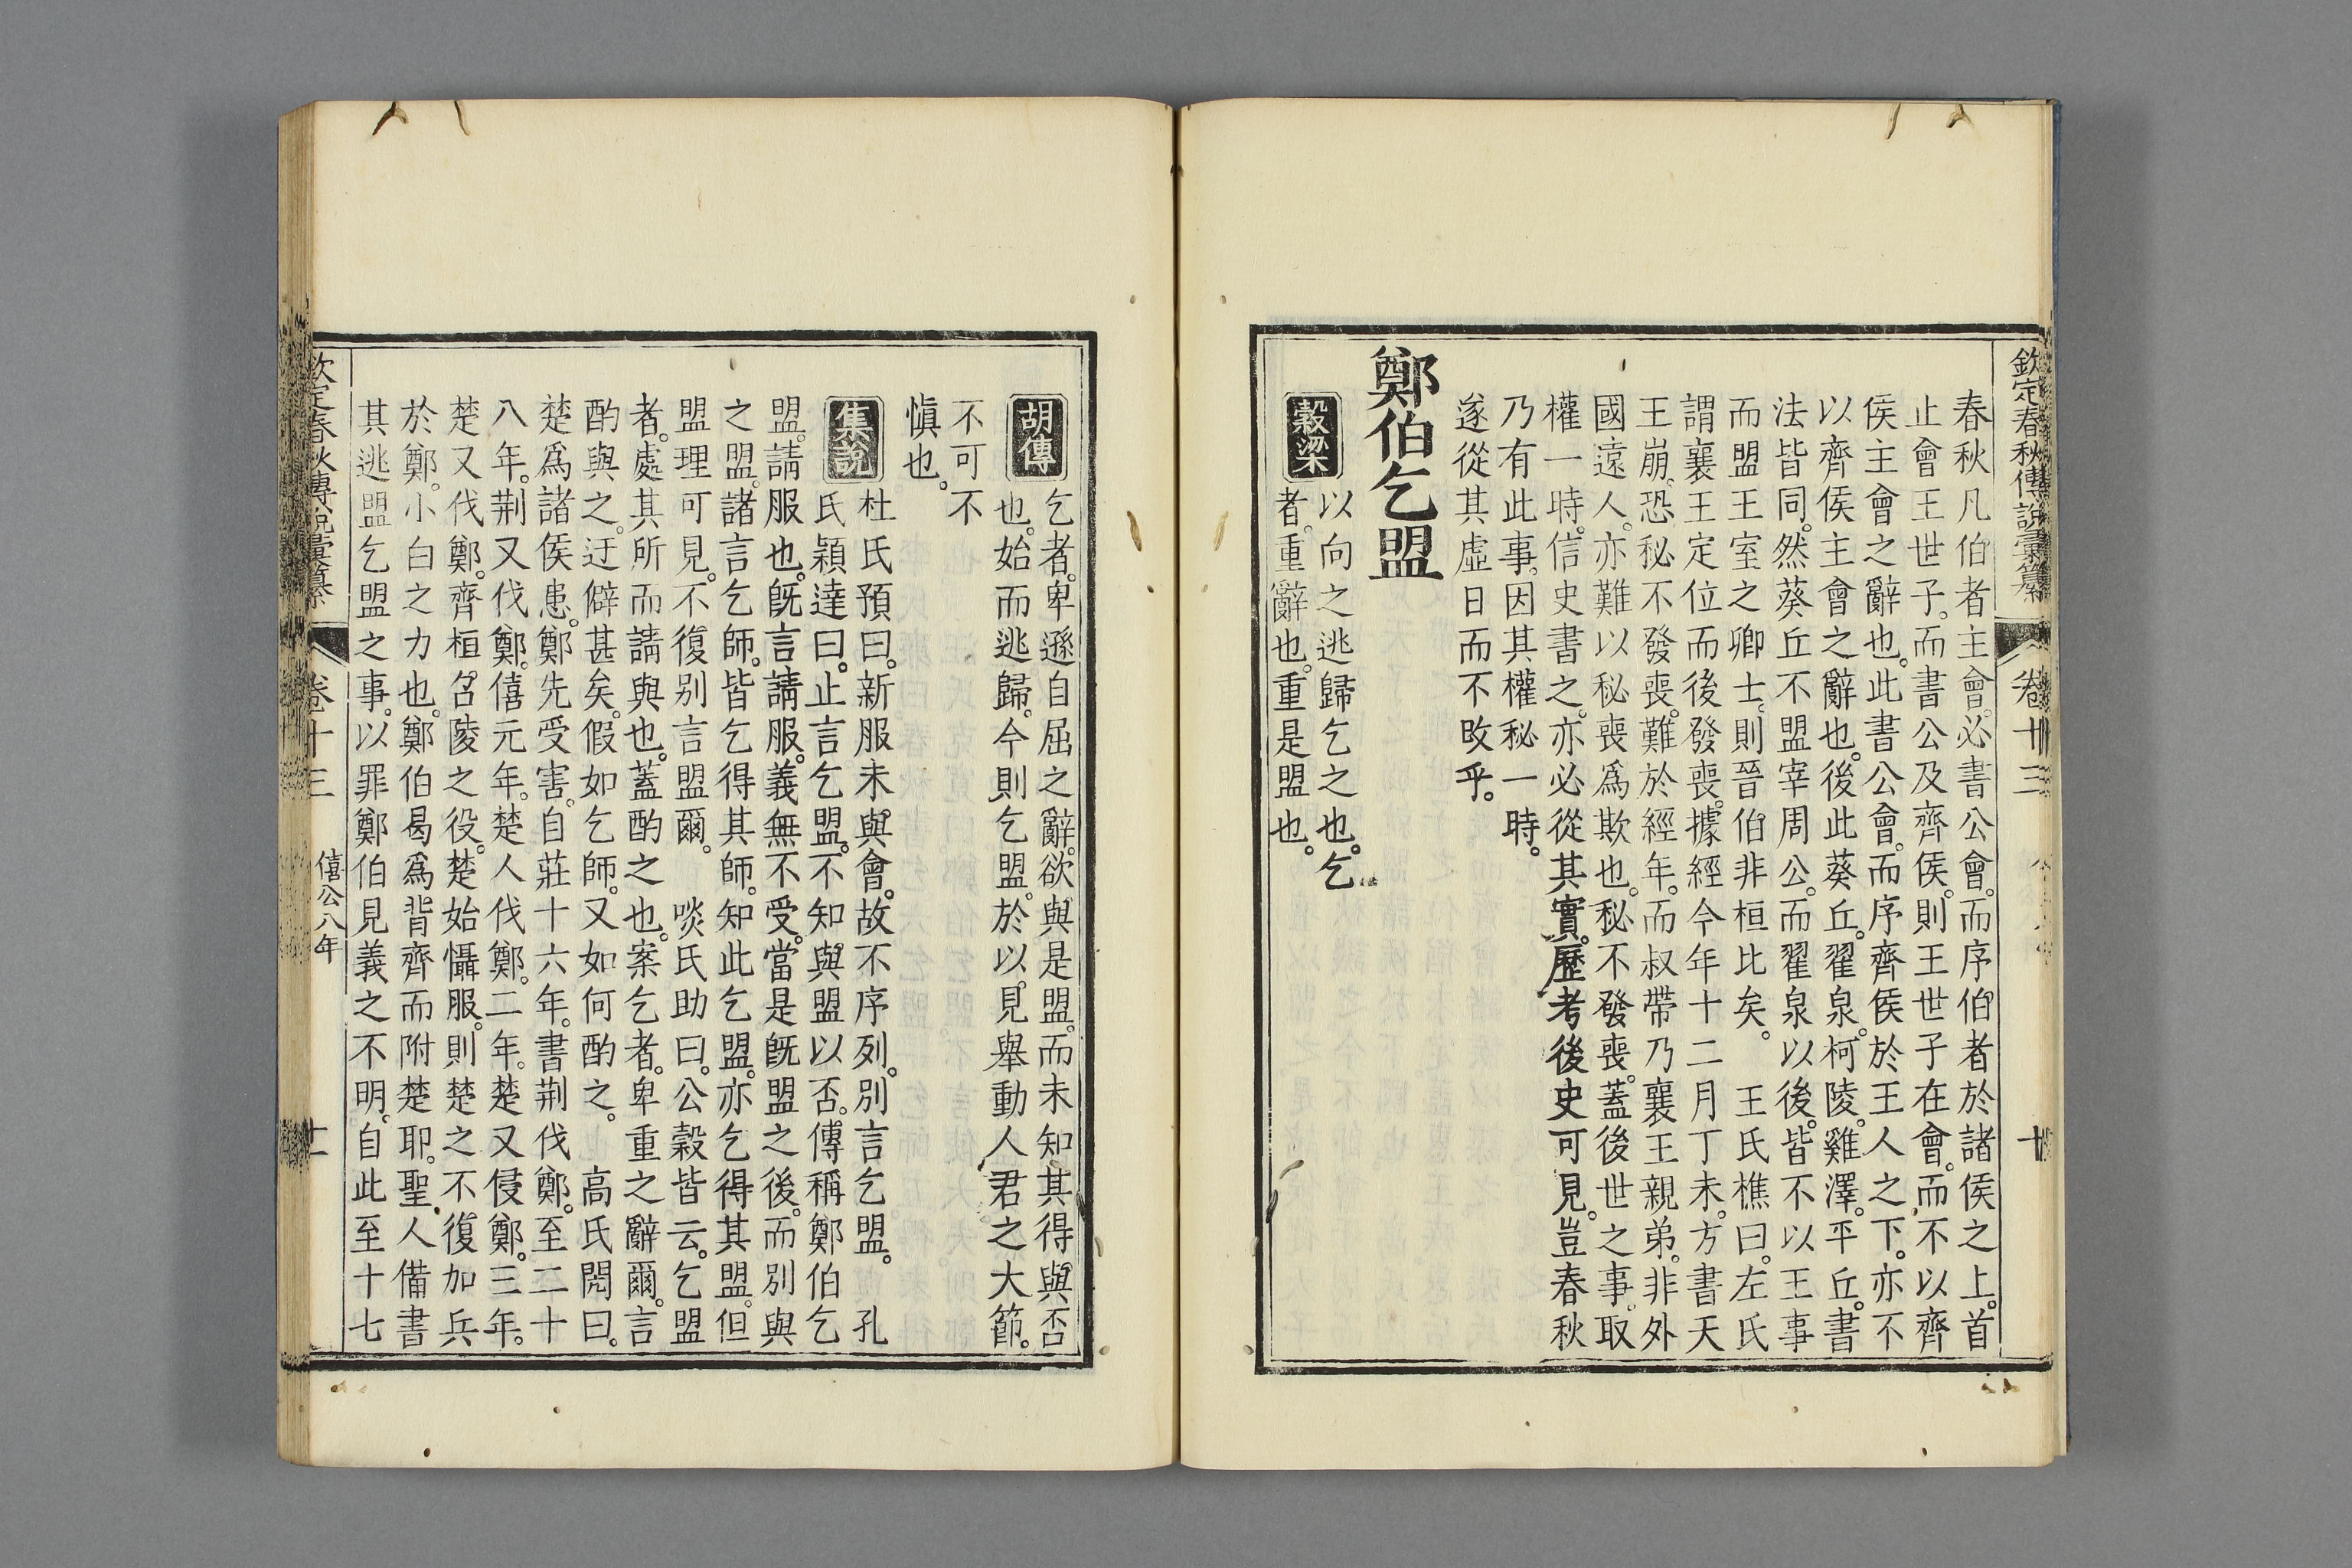 欽定春秋傳說彙纂 卷十三 十
春秋凡伯者主會必書公會而序伯者於諸侯之上首
止會王世子而書公及齊侯則王世子在會而不以齊
侯主會之辭也此書公會而序齊侯於王人之下亦不
以齊侯主會之辭也後此葵丘翟泉柯陵雞澤平丘書
法皆同然葵丘不盟宰周公而翟泉以後皆不以王事
而盟王室之卿士則晉伯非桓比矣。 王氏樵曰左氏
謂襄王定位而後發喪據經今年十二月丁未方書天
王崩恐秘不發喪難於經年而叔帶乃襄王親弟非外
國遠人亦難以秘喪爲欺也秘不發喪蓋後世之事取
權一時信史書之亦必從其實歷考後史可見豈春秋
乃有此事因其權秘一時。
遂從其虛日而不攺乎。
鄭伯乞盟
穀梁
以向之逃歸乞之也。乞
者。重辭也。重是盟也。
胡傳
乞者。卑遜自屈之辭。欲與是盟。而未知其得與否
也。始而逃歸。今則乞盟。於以見舉動人君之大節。
不可不
愼也。
集說
杜氏預曰。新服未與會。故不序列。別言乞盟。 孔
氏穎達曰。止言乞盟。不知與盟以否。傳稱鄭伯乞
盟。請服也。旣言請服。義無不受。當是旣盟之後。而別與
之盟。諸言乞師。皆乞得其師。知此乞盟。亦乞得其盟。但
盟理可見。不復別言盟爾。 啖氏助曰。公穀皆云。乞盟
者。處其所而請與也。蓋酌之也。案乞者。卑重之辭爾。言
酌與之。迂僻甚矣。假如乞師。又如何酌之。 高氏閌曰。
楚爲諸侯患。鄭先受害。自莊十六年。書荆伐鄭。至二十
八年。荆又伐鄭。僖元年。楚人伐鄭。二年。楚又侵鄭。三年。
楚又伐鄭。齊桓召陵之役。楚始懾服。則楚之不復加兵
於鄭。小白之力也。鄭伯曷爲背齊而附楚耶。聖人備書
其逃盟乞盟之事。以罪鄭伯見義之不明。自此至十七
欽定春秋傳說彙纂 卷十三 僖公八年 十一